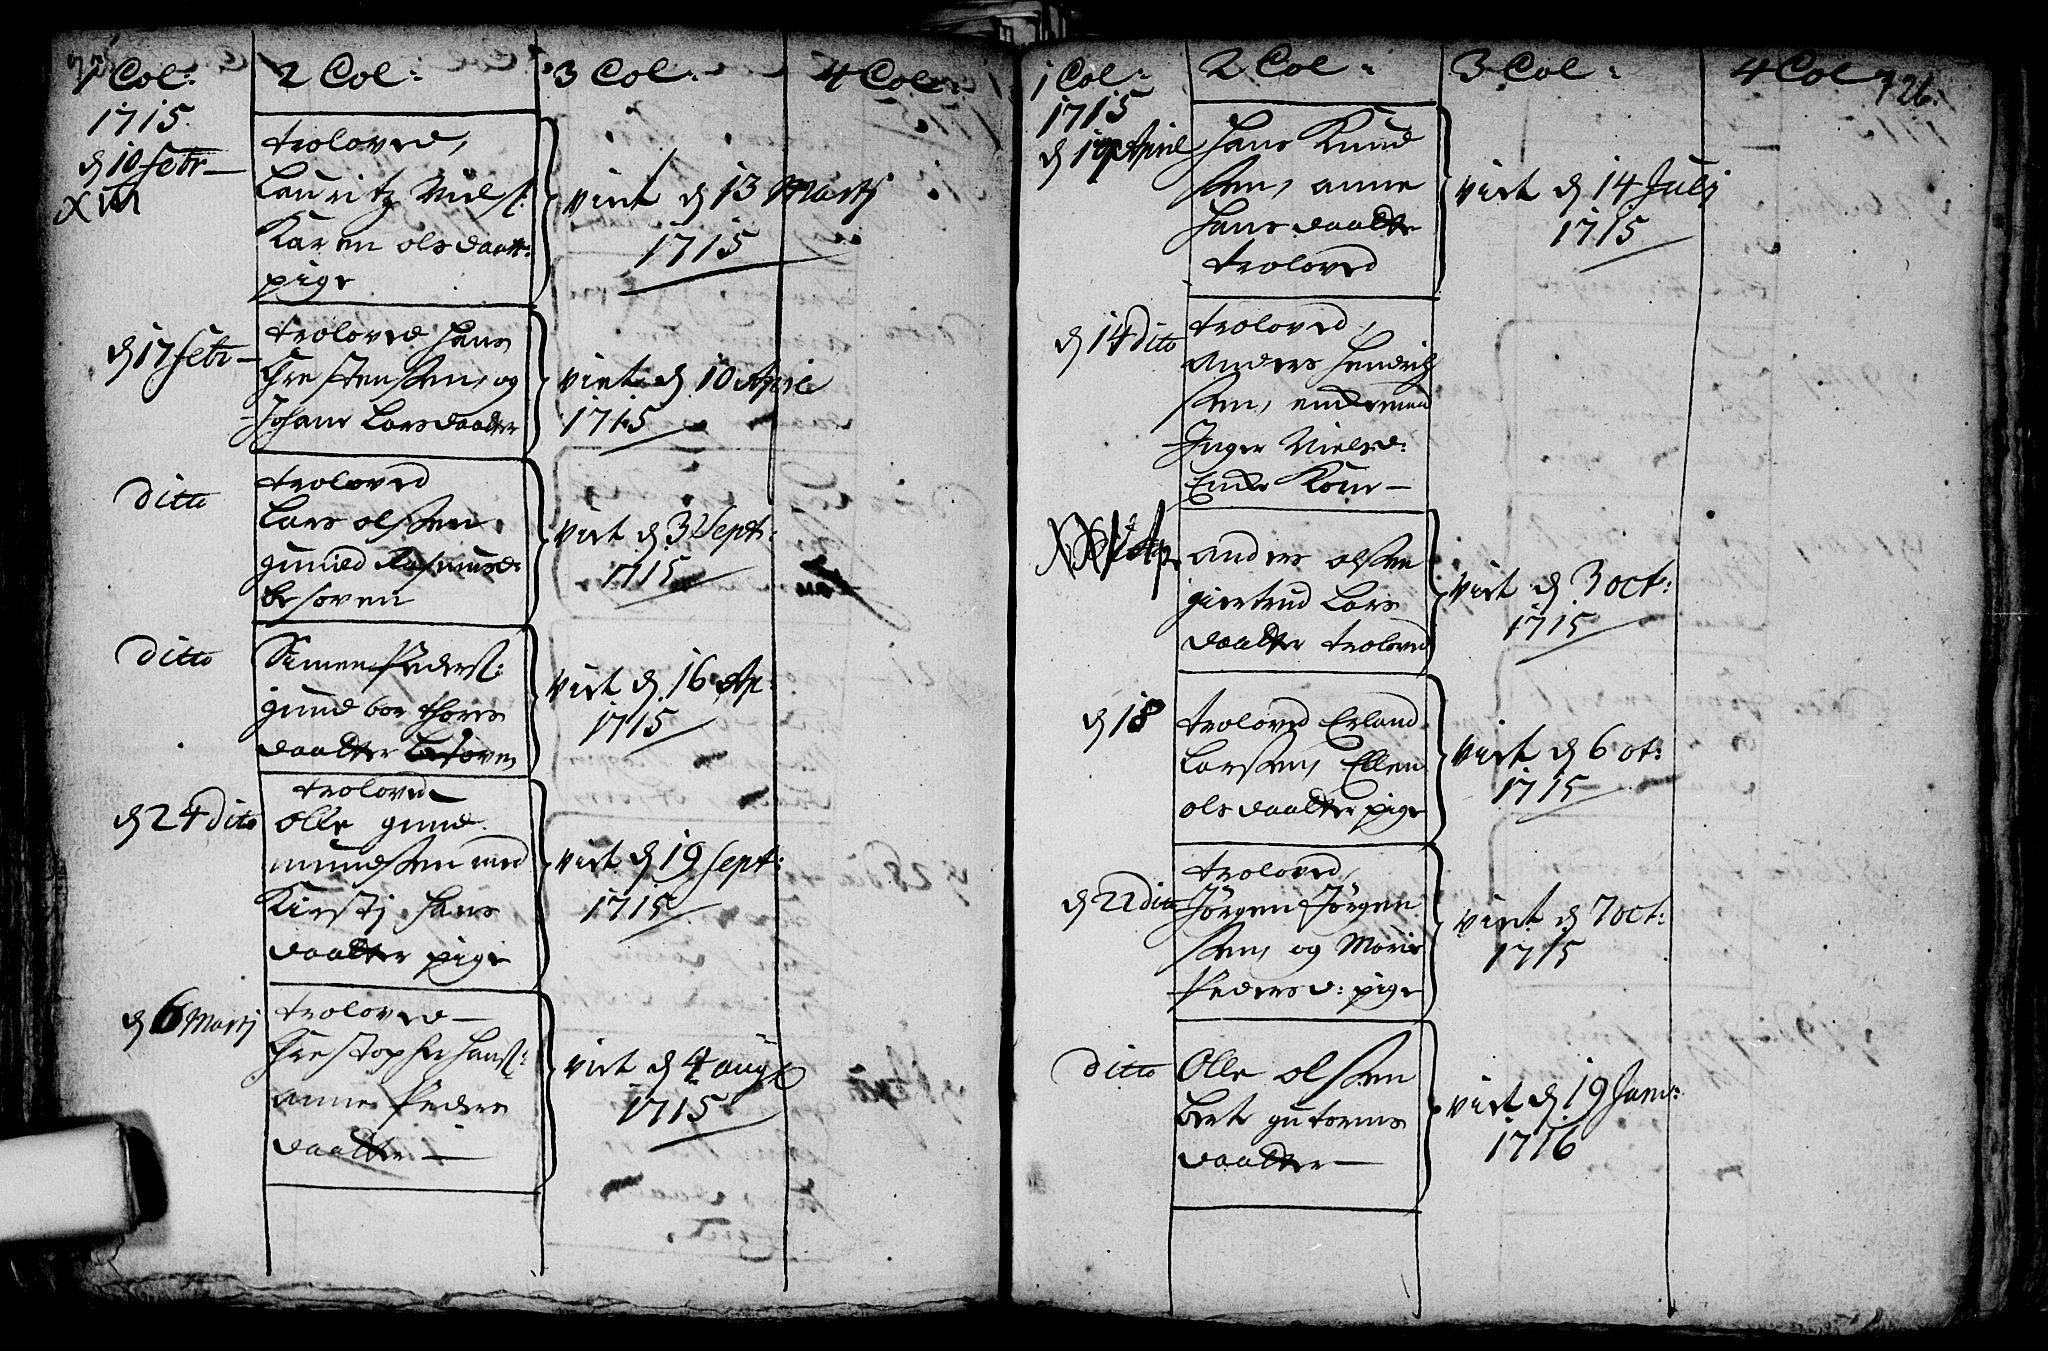 1 Col:
2 Col:
3 Col:
4 Col:
1715
d 10 febr
troloved,
Lauritz Niels:
Karen olsdaatt:
pige
viet d 13 Martj
1715
d 17 febr
troloved Hans
Christensen, og
Johane Larsdaatter
viet d 10 April
1715
ditto
troloved
Lars olssen
gunild Rasmusd:
besoven
viet d 3 Sept:
1715
ditto
Simen Peders:
gundbor thores
daatter besoven
viet d 16 Ap:
1715
d 24 dito
troloved
Olle gund
mundssen med
Kirstj Hans
daatter pige
viet d 19 Sept:
1715
d 6 Martj
troloved
Christopher Hans:
anne Peders
daatter
viet d 4 aug
1715
1 Col:
2 Col:
3 Col:
4 Col
126.
1715
April
Hans Knud
ssen, anne
Hansdaatter
troloved
viet d 14 Julj
1715
d 14 dito
troloved,
anders Hendrich
ssen, enckemand
Inger Nielsd:
Encke Kone
Ap
anders olssen
giertrud Lars
daatter troloved
viet d 3 oct:
1715
d 18
troloved Erland
Larssen, Ellen
olsdaatter pige
viet d 6 ot:
1715
d 22 dito
troloved,
Jörgen Jörgen
ssen, og Maria
Pedersd: pige
viet d 7 oct:
1715
ditto
Olle olssen
berte gutorms
daatter
viet d 19 Janv:
1716